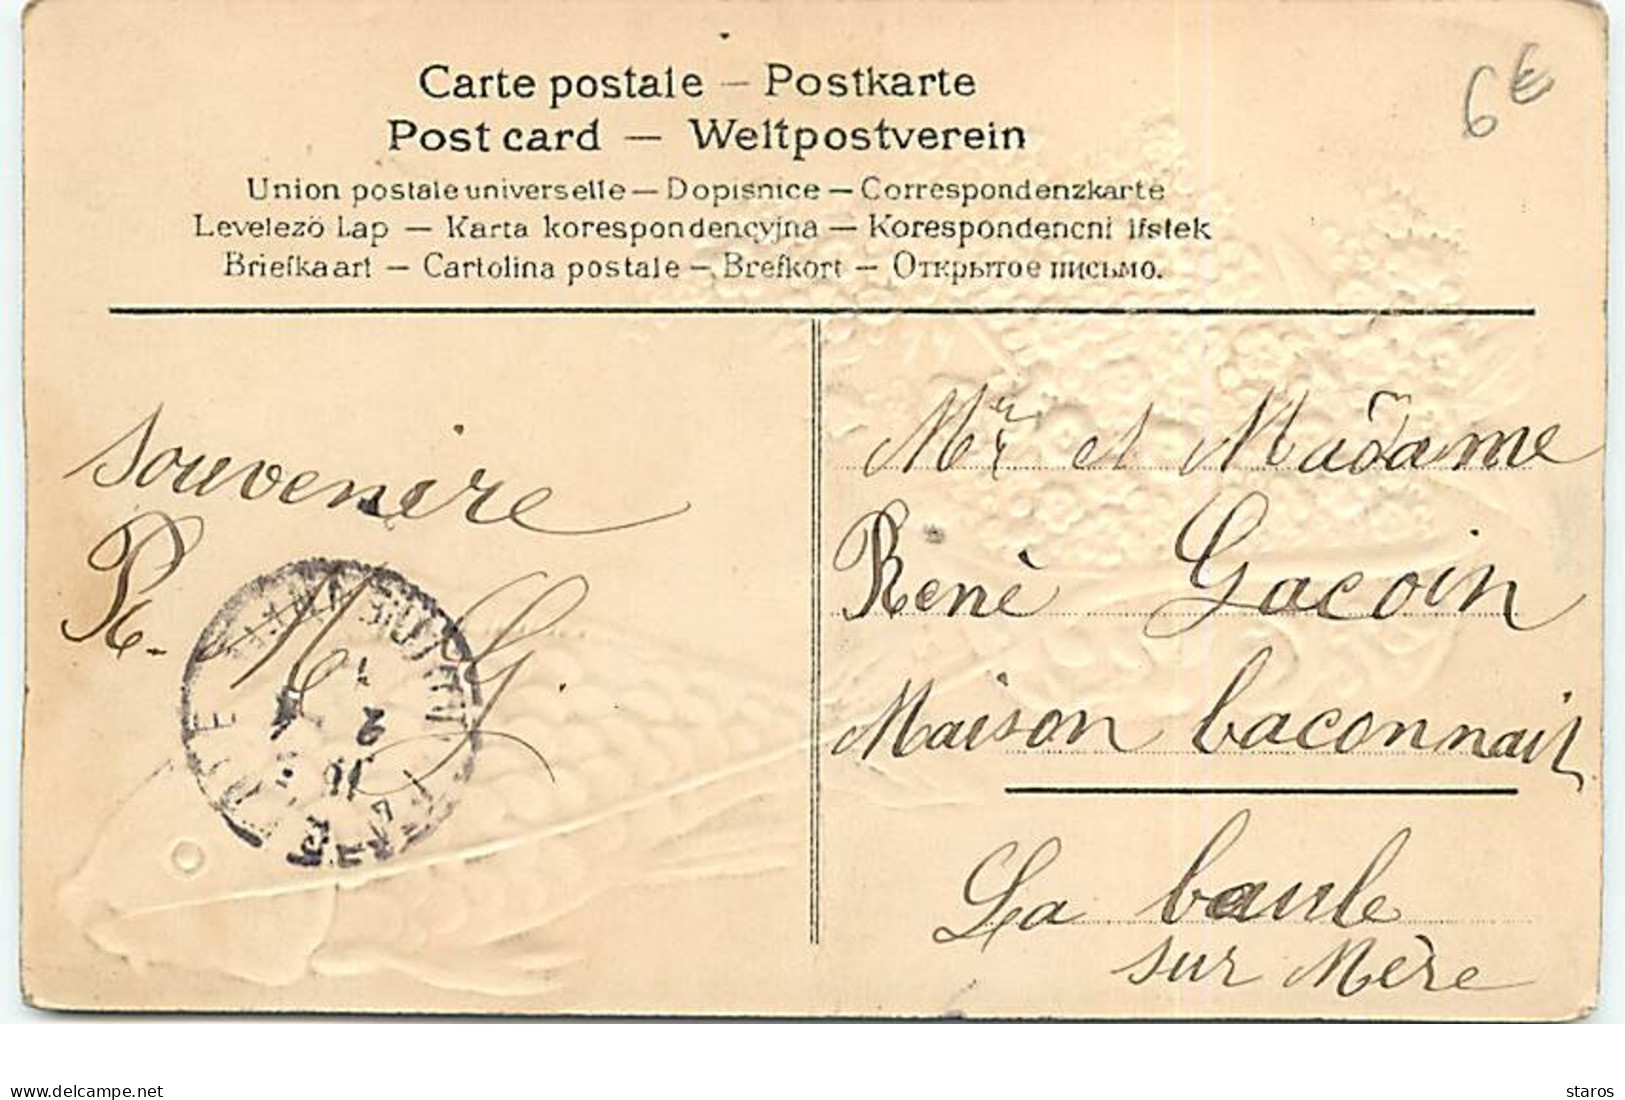 6€
Carte postale — Postkarte
Post card — Weltpostverein
Union postale universelle — Dopisnice — Correspondenzkarte
Levelező Lap — Karta korespondencyjna — Korespondencni lístek
Briefkaart — Cartolina postale — Brefkort — Открытое письмо.
souvenire
R. M G.
Mr et Madame
Renè Gacoin
Maison baconnait
La baule
sur Mère
www.delcampe.net
staros